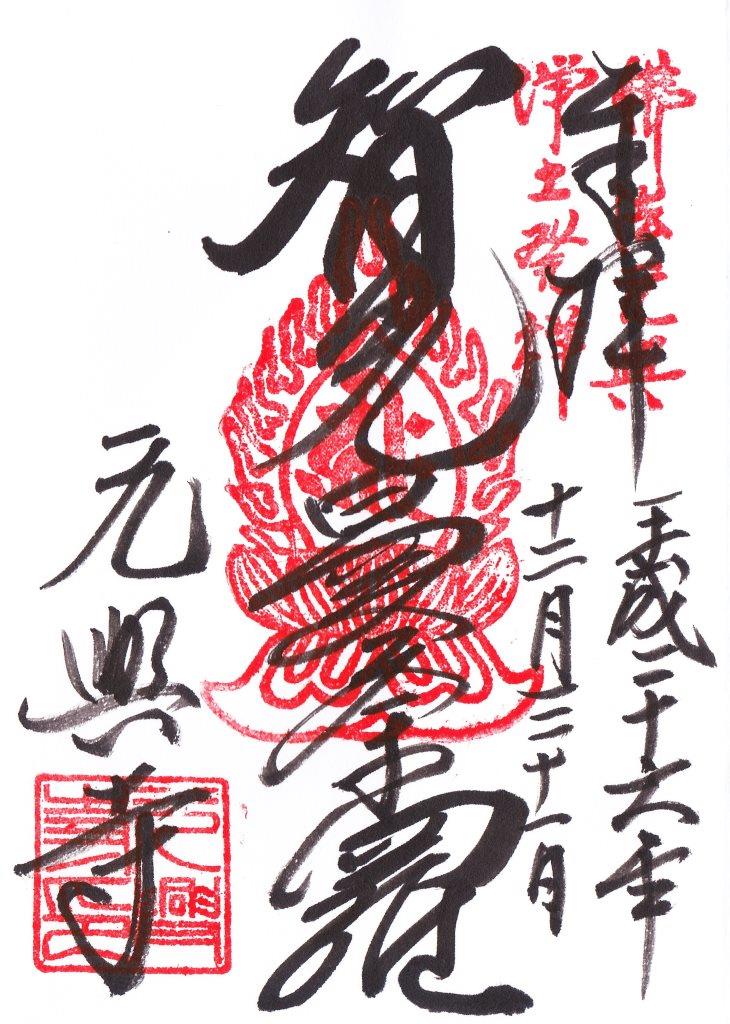 奉拝
佛法元興
淨土発祥
平成二十六年
十二月二十一日
智光曼荼羅
元興寺